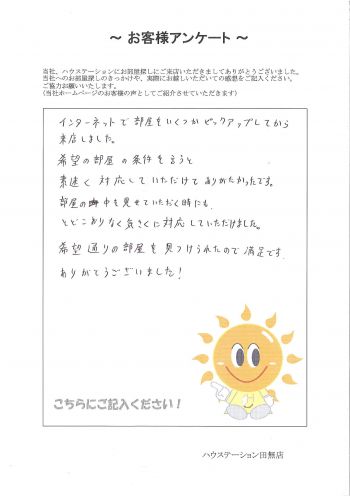 ～ お客様アンケート ～
当社、ハウステーションにお部屋探しにご来店いただきましてありがとうございました。
当社へのお部屋探しのきっかけや、実際にお越しいただいての感想をご記入ください。
ご協力お願いいたします。
(当社ホームページのお客様の声としてご紹介させていただきます)
インターネットで部屋をいくつかピックアップしてから
来店しました。
希望の部屋の条件を言うと
素速く対応していただけてありがたかったです。
部屋の中も見せていただく時にも、
とどこおりなく気さくに対応していただけました。
希望通りの部屋を見つけられたので満足です。
ありがとうございました!
こちらにご記入ください!
ハウステーション田無店